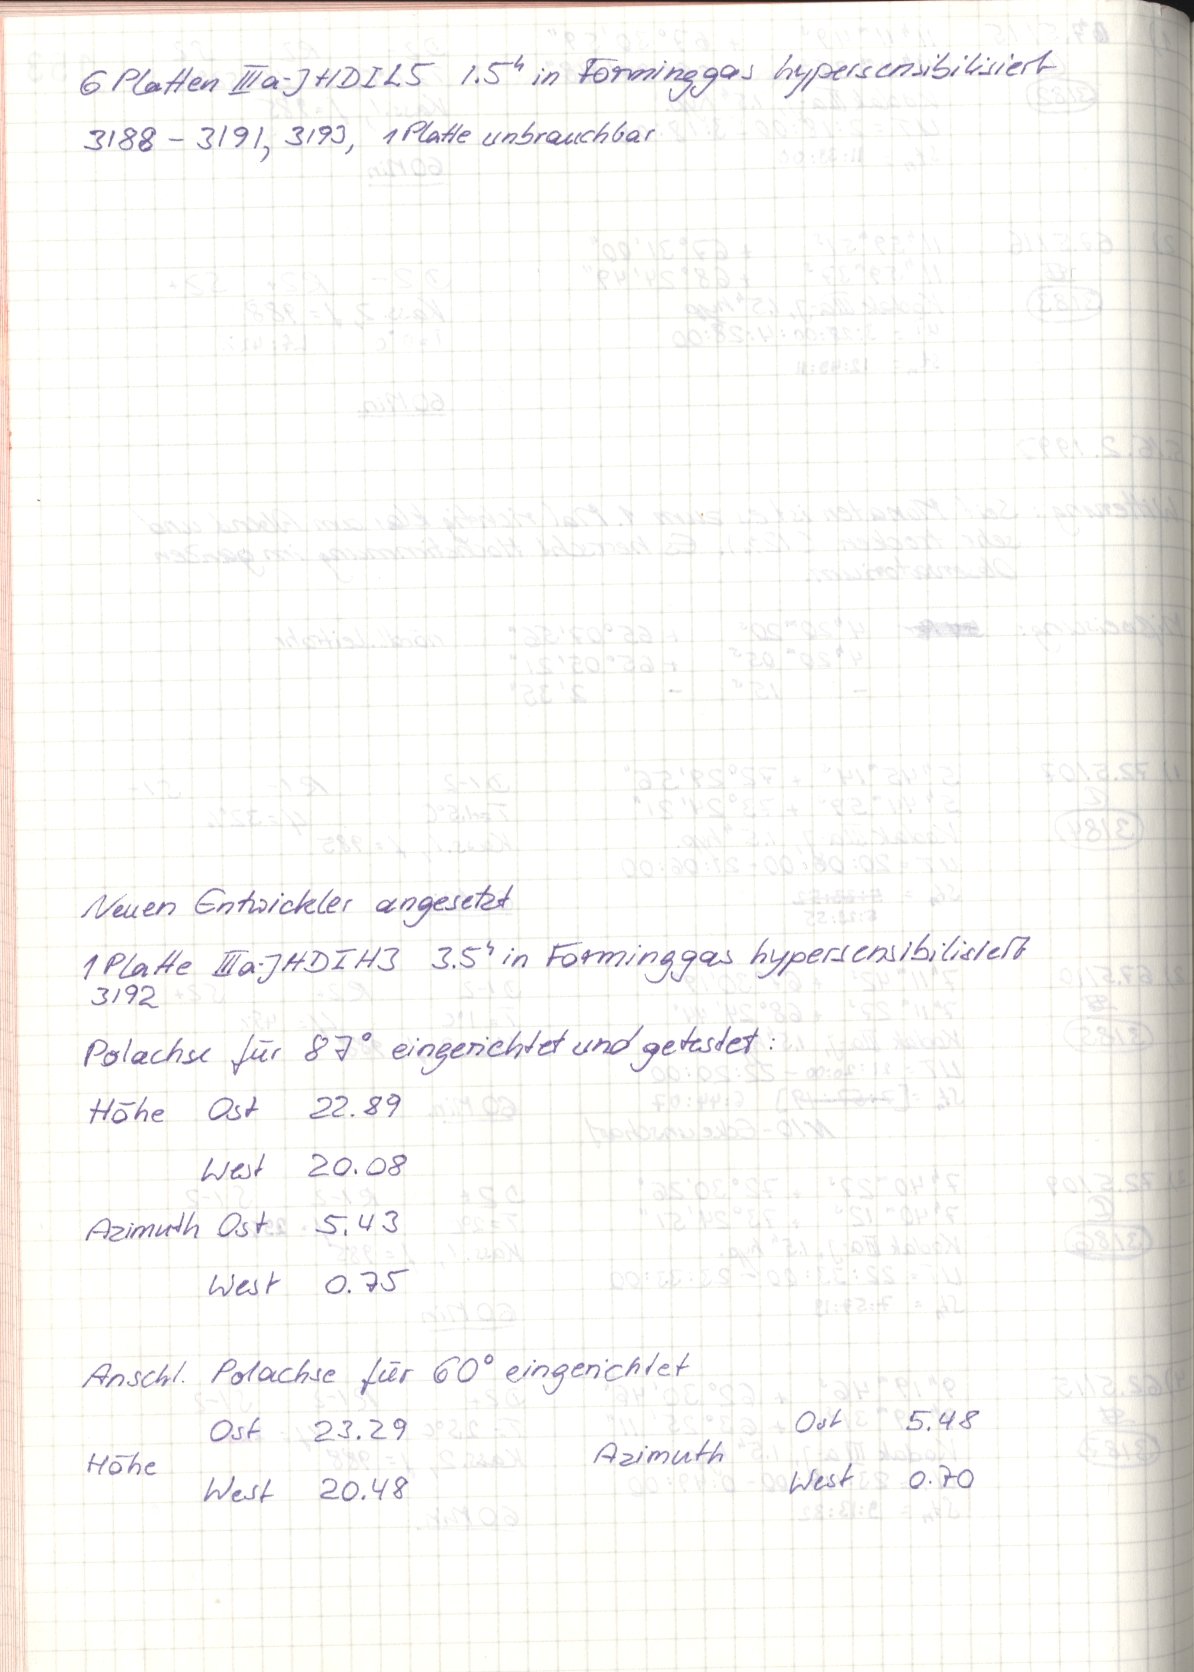 6 Platten IIIa-J HDIL5 1.5ʰ in Forminggas hypersensibilisiert
3188 – 3191, 3193, 1 Platte unbrauchbar
Neuen Entwickler angesetzt
1 Platte IIIa-J HDIH3 3.5ʰ in Forminggas hypersensibilisiert
3192
Polachse für 87° eingerichtet und getestet:
Höhe Ost 22.89
West 20.08
Azimuth Ost 5.43
West 0.75
Anschl. Polachse für 60° eingerichtet
Ost 23.29 Ost 5.48
Höhe Azimuth
West 20.48 West 0.70